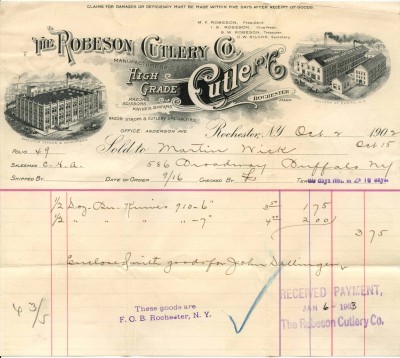 CLAIMS FOR DAMAGES OR DEFICIENCY MUST BE MADE WITHIN FIVE DAYS AFTER RECEIPT OF GOODS.
M. F. ROBESON, President
I. S. ROBESON, Vice-Prest.
Secretary
THE ROBESON CUTLERY CO.
MANUFACTURERS OF
HIGH GRADE Cutlery
RAZORS
SCISSORS
ROCHESTER
RAZOR STROPS & CUTLERY SPECIALTIES
OFFICE: ANDERSON AVE.
Rochester, N.Y. Oct 2 1902
Sold to Martin Wick Oct 15
FOLIO 49
586 Broadway Buffalo NY
SALESMAN C.H.A.
SHIPPED BY DATE OF ORDER 9/16 CHECKED BY TERMS
1/2 Doz. Knives 910-6" 3 50 1 75
1/2 " " " -7" 4 00 2 00
3 75
Enclosed with goods for John
These goods are
F. O. B. Rochester, N. Y.
RECEIVED PAYMENT,
JAN 6 - 1903
The Robeson Cutlery Co.